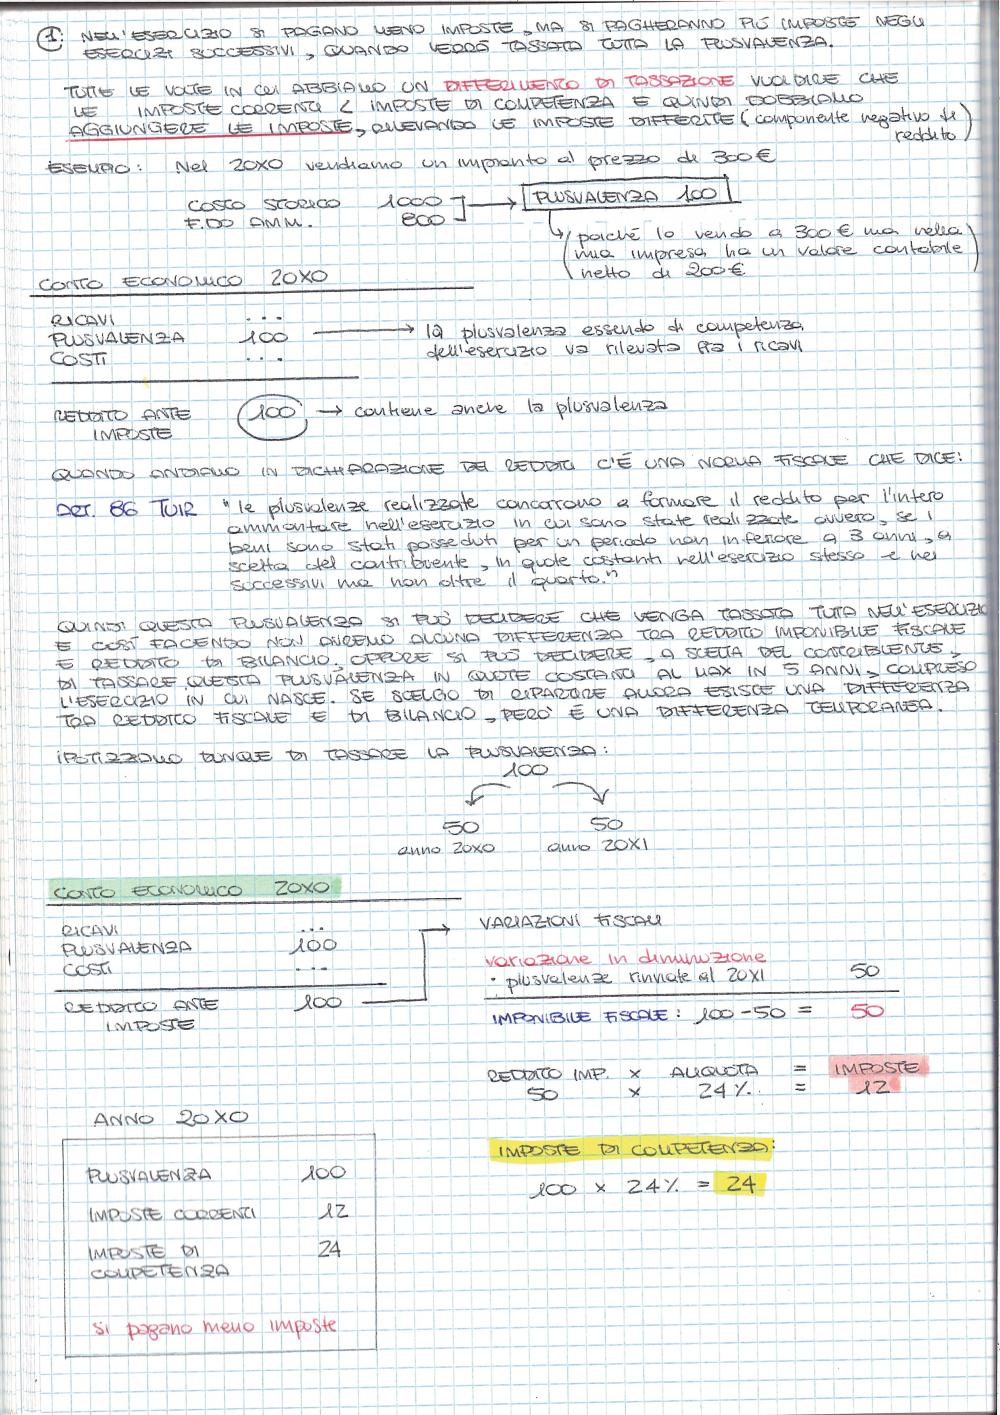 1. NELL'ESERCIZIO SI PAGANO MENO IMPOSTE, MA SI PAGHERANNO PIÚ IMPOSTE NEGLI
ESERCIZI SUCCESSIVI, QUANDO VERRÁ TASSATA TUTTA LA PLUSVALENZA.
TUTTE LE VOLTE IN CUI ABBIAMO UN DIFFERIMENTO DI TASSAZIONE VUOL DIRE CHE
LE IMPOSTE CORRENTI < IMPOSTE DI COMPETENZA E QUINDI DOBBIAMO
AGGIUNGERE LE IMPOSTE, RILEVANDO LE IMPOSTE DIFFERITE (componente negativo di
reddito)
ESEMPIO: Nel 20X0 vendiamo un impianto al prezzo di 300€
COSTO STORICO 1000 → PLUSVALENZA 100
F.DO AMM. 800
(poiché lo vendo a 300€ ma nella
mia impresa ha un valore contabile
netto di 200€)
CONTO ECONOMICO 20X0
RICAVI ...
PLUSVALENZA 100 → la plusvalenza essendo di competenza
COSTI ... dell'esercizio va rilevata fra i ricavi
REDDITO ANTE 100 → contiene anche la plusvalenza
IMPOSTE
QUANDO ANDIAMO IN DICHIARAZIONE DEI REDDITI C'É UNA NORMA FISCALE CHE DICE:
Art. 86 TUIR "le plusvalenze realizzate concorrono a formare il reddito per l'intero
ammontare nell'esercizio in cui sono state realizzate ovvero, se i
beni sono stati posseduti per un periodo non inferiore a 3 anni, a
scelta del contribuente, in quote costanti nell'esercizio stesso e nei
successivi ma non oltre il quarto."
QUINDI QUESTA PLUSVALENZA SI PUÒ DECIDERE CHE VENGA TASSATA TUTTA NELL'ESERCIZIO
E COSÍ FACENDO NON AVREMO ALCUNA DIFFERENZA TRA REDDITO IMPONIBILE FISCALE
E REDDITO DI BILANCIO, OPPURE SI PUÒ DECIDERE, A SCELTA DEL CONTRIBUENTE,
DI TASSARE QUESTA PLUSVALENZA IN QUOTE COSTANTI AL MAX IN 5 ANNI, COMPRESO
L'ESERCIZIO IN CUI NASCE. SE SCELGO DI RIPARTIRE ALLORA ESISTE UNA DIFFERENZA
TRA REDDITO FISCALE E DI BILANCIO, PERÒ É UNA DIFFERENZA TEMPORANEA.
IPOTIZZIAMO DUNQUE DI TASSARE LA PLUSVALENZA:
100
50 50
anno 20X0 anno 20X1
CONTO ECONOMICO 20X0
RICAVI ... → VARIAZIONI FISCALI
PLUSVALENZA 100
COSTI ... variazione in diminuzione
• plusvalenze rinviate al 20X1 50
REDDITO ANTE 100
IMPOSTE IMPONIBILE FISCALE: 100-50 = 50
REDDITO IMP. × ALIQUOTA = IMPOSTE
50 × 24% = 12
ANNO 20X0
IMPOSTE DI COMPETENZA:
PLUSVALENZA 100
100 × 24% = 24
IMPOSTE CORRENTI 12
IMPOSTE DI 24
COMPETENZA
si pagano meno imposte